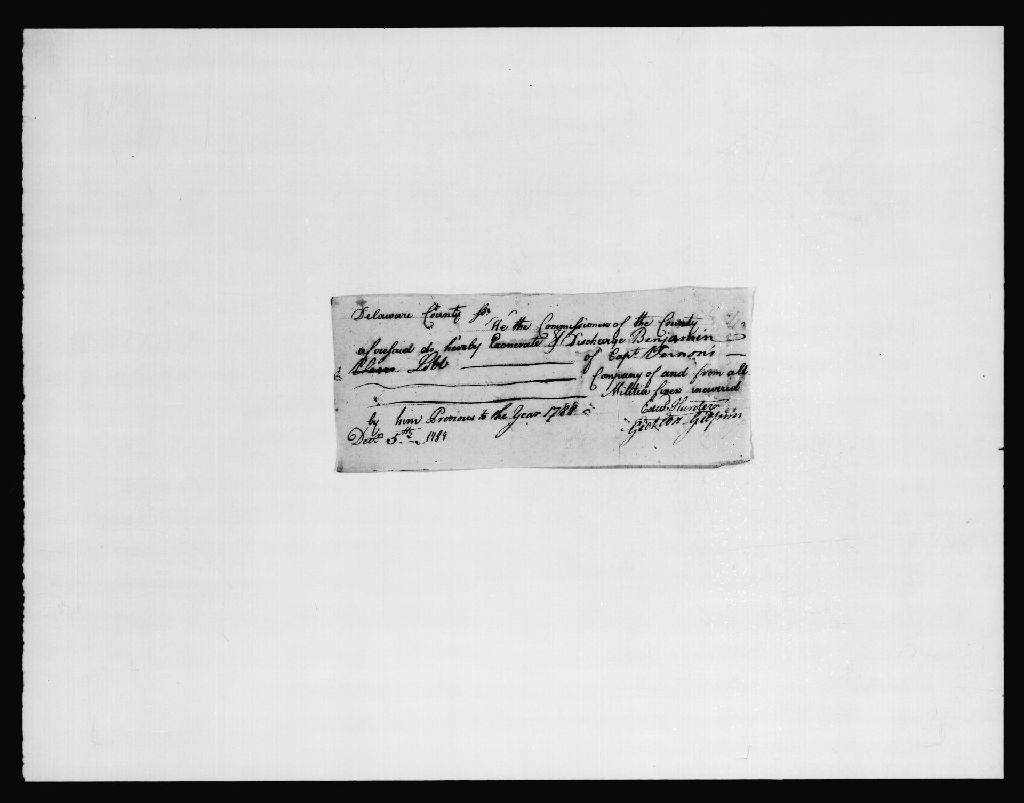 Delaware County ss.
We the Commissioners of the County
aforesaid do hereby Exonerate & Discharge Benjamin
Lobb of Capt. Vernon's
Company of and from all
Militia fines incurred
by him Previous to the Year 1788
Edwd. Hunter
Gideon Gilpin
Decr. 5th 1789